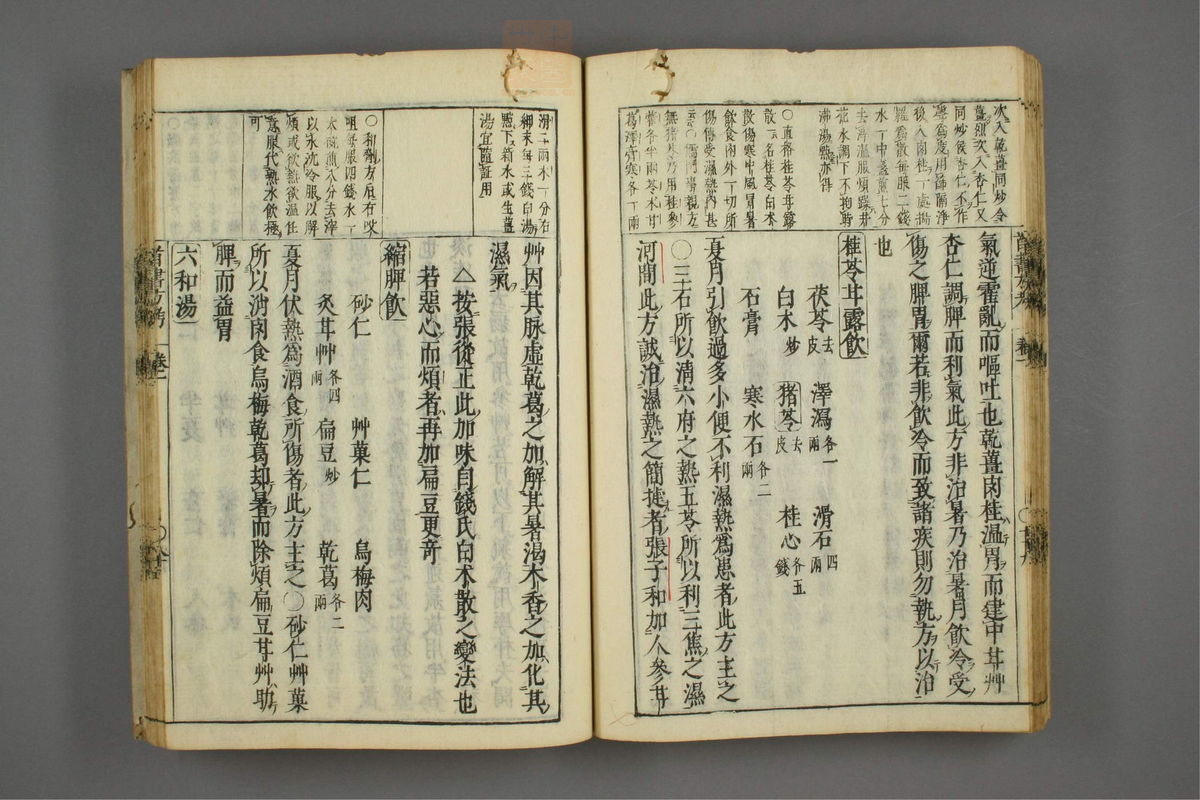 次入乾薑同炒令
薑細次入杏仁又
同炒後杏仁不作
聲爲度用篩隔淨
後入肉桂一處搗
羅爲散每服二錢
水一中盞煎七分
去滓溫服煩躁井
花水調下不拘時
沸湯點亦得
○直指桂苓甘露
散一名桂苓白朮
散傷寒中風冒暑
飲食內外一切所
傷傳受濕熱內甚
云云○儒門事親方
無猪苓乃用桂參
藿各半兩苓朮甘
葛澤膏寒各一兩
氣逆霍亂而嘔吐也乾薑肉桂溫胃而建中甘艸
杏仁調脾而利氣此方非治暑乃治暑月飲冷受
傷之脾胃爾若非飲冷而致諸疾則勿執方以治
也
桂苓甘露飲
茯苓去皮 澤瀉各一兩 滑石四兩
白朮炒 猪苓去皮 桂心各五錢
石膏 寒水石各二兩
夏月引飲過多小便不利濕熱爲患者此方主之
○三石所以淸六府之熱五苓所以利三焦之濕
河間此方誠治濕熱之簡捷者張子和加人參甘
滑二兩木一分右
細末每三錢白湯
點下新水或生薑
湯宜隨證用
○和劑方㕮右㕮
咀每服四錢水一
大碗煎八分去滓
以水沈冷服以解
煩或欲熱欲溫任
意服代熱水飲極
可
艸因其脉虛乾葛之加解其暑渴木香之加化其
濕氣
△按張從正此加味自錢氏白朮散之變法也
若惡心而煩者再加扁豆更奇
縮脾飲
砂仁 艸菓仁 烏梅肉
炙甘艸各四兩 扁豆炒 乾葛各二兩
夏月伏熱爲酒食所傷者此方主之○砂仁艸菓
所以消肉食烏梅乾葛却暑而除煩扁豆甘艸助
脾而益胃
六和湯